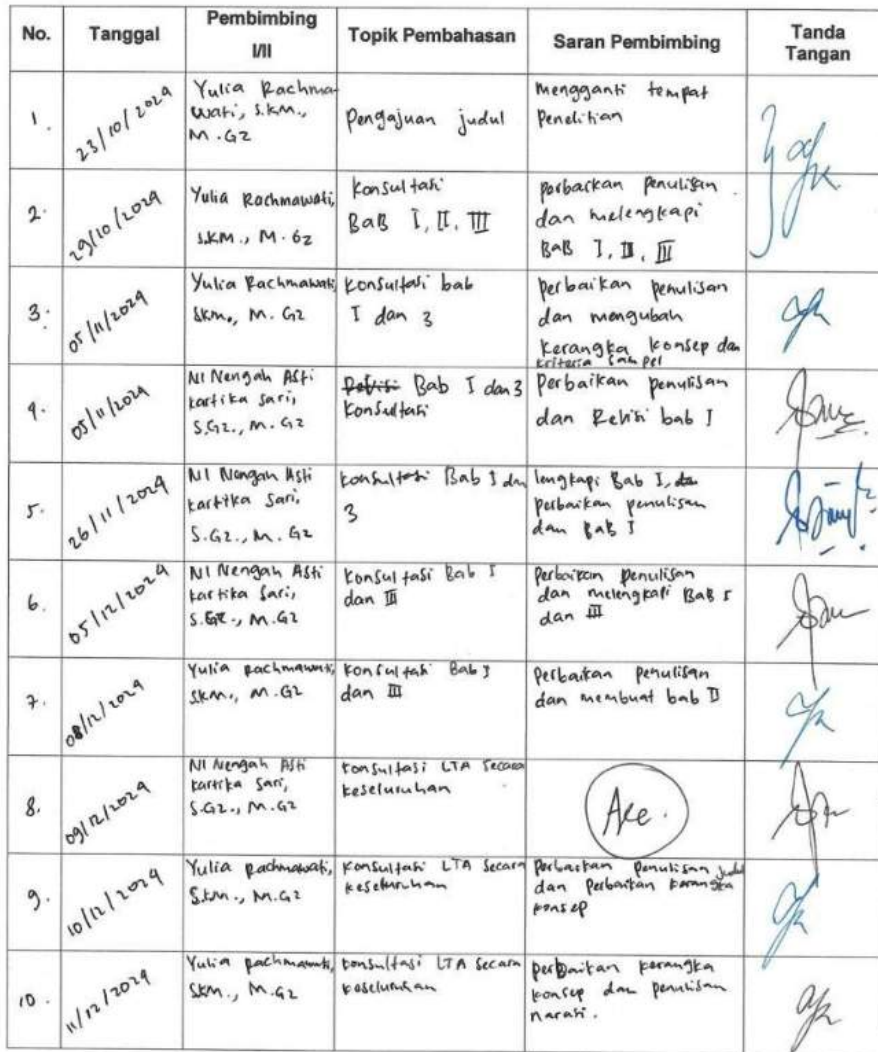 No. Tanggal Pembimbing I/II Topik Pembahasan Saran Pembimbing Tanda Tangan
1. 23/10/2024 Yulia Rachma-
wati, S.KM.,
M.GZ
Pengajuan judul
mengganti tempat
Penelitian
2. 29/10/2024 Yulia Rachmawati,
S.KM., M.GZ
Konsultasi
BAB I, II, III
perbaikan penulisan
dan melengkapi
BAB I, II, III
3. 05/11/2024 Yulia Rachmawati,
SKM., M.GZ
Konsultasi bab
I dan 3
perbaikan penulisan
dan mengubah
kerangka konsep dan
kriteria sampel
4. 05/11/2024 NI Nengah Asti
kartika sari,
S.GZ., M.GZ
Revisi Bab I dan 3
Konsultasi
Perbaikan penulisan
dan Revisi bab I
5. 26/11/2024 NI Nengah Asti
kartika sari,
S.GZ., M.GZ
konsultasi Bab I dan
3
lengkapi Bab I,
perbaikan penulisan
dan BAB I
6. 05/12/2024 NI Nengah Asti
kartika sari,
S.GZ., M.GZ
Konsultasi Bab I
dan III
Perbaikan penulisan
dan melengkapi BAB I
dan III
7. 08/12/2024 Yulia Rachmawati,
SKM., M.GZ
Konsultasi Bab I
dan III
Perbaikan penulisan
dan membuat bab II
8. 09/12/2024 NI Nengah Asti
kartika sari,
S.GZ., M.GZ
konsultasi LTA secara
keseluruhan
Acc.
9. 10/12/2024 Yulia Rachmawati,
S.KM., M.GZ
Konsultasi LTA secara
keseluruhan
Perbaikan penulisan judul
dan perbaikan kerangka
konsep
10. 11/12/2024 Yulia Rachmawati,
SKM., M.GZ
konsultasi LTA secara
keseluruhan
perbaikan kerangka
konsep dan penulisan
narasi.